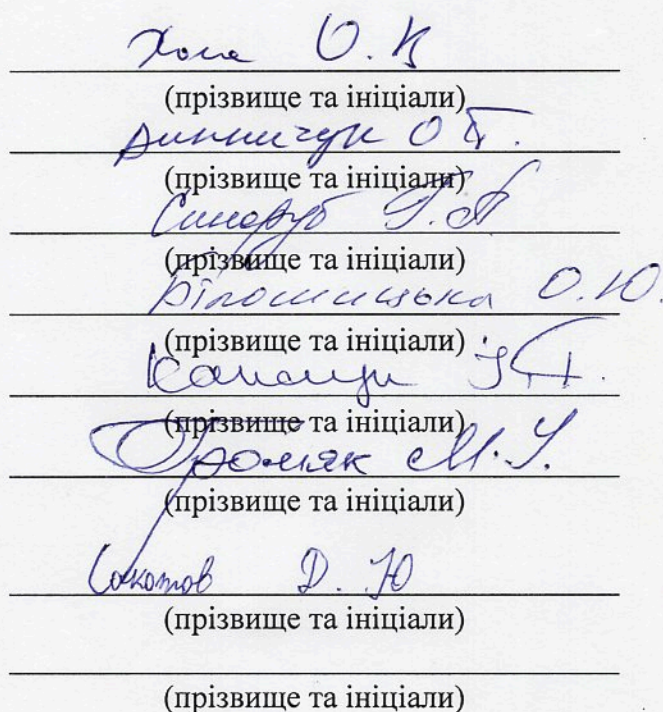 Хома О. В
(прізвище та ініціали)
Динничук О Т.
(прізвище та ініціали)
Синоруб Г. П
(прізвище та ініціали)
Білошицька О. Ю.
(прізвище та ініціали)
(прізвище та ініціали)
Громяк М. І.
(прізвище та ініціали)
Сокотов Д. Ю
(прізвище та ініціали)
(прізвище та ініціали)